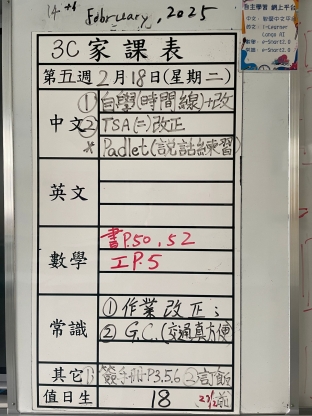 February, 2025
自主學習 網上平台
3C 家課表
第五週 2月18日(星期二)
中文
① 自學(時間線)+改
② TSA(二)改正
* Padlet(說話練習)
英文
數學
書P.50, 52
工P.5
常識
① 作業改正;
② G.C.(交通真方便
其它
簽手冊P3.5.6 ②訂飯
值日生
18